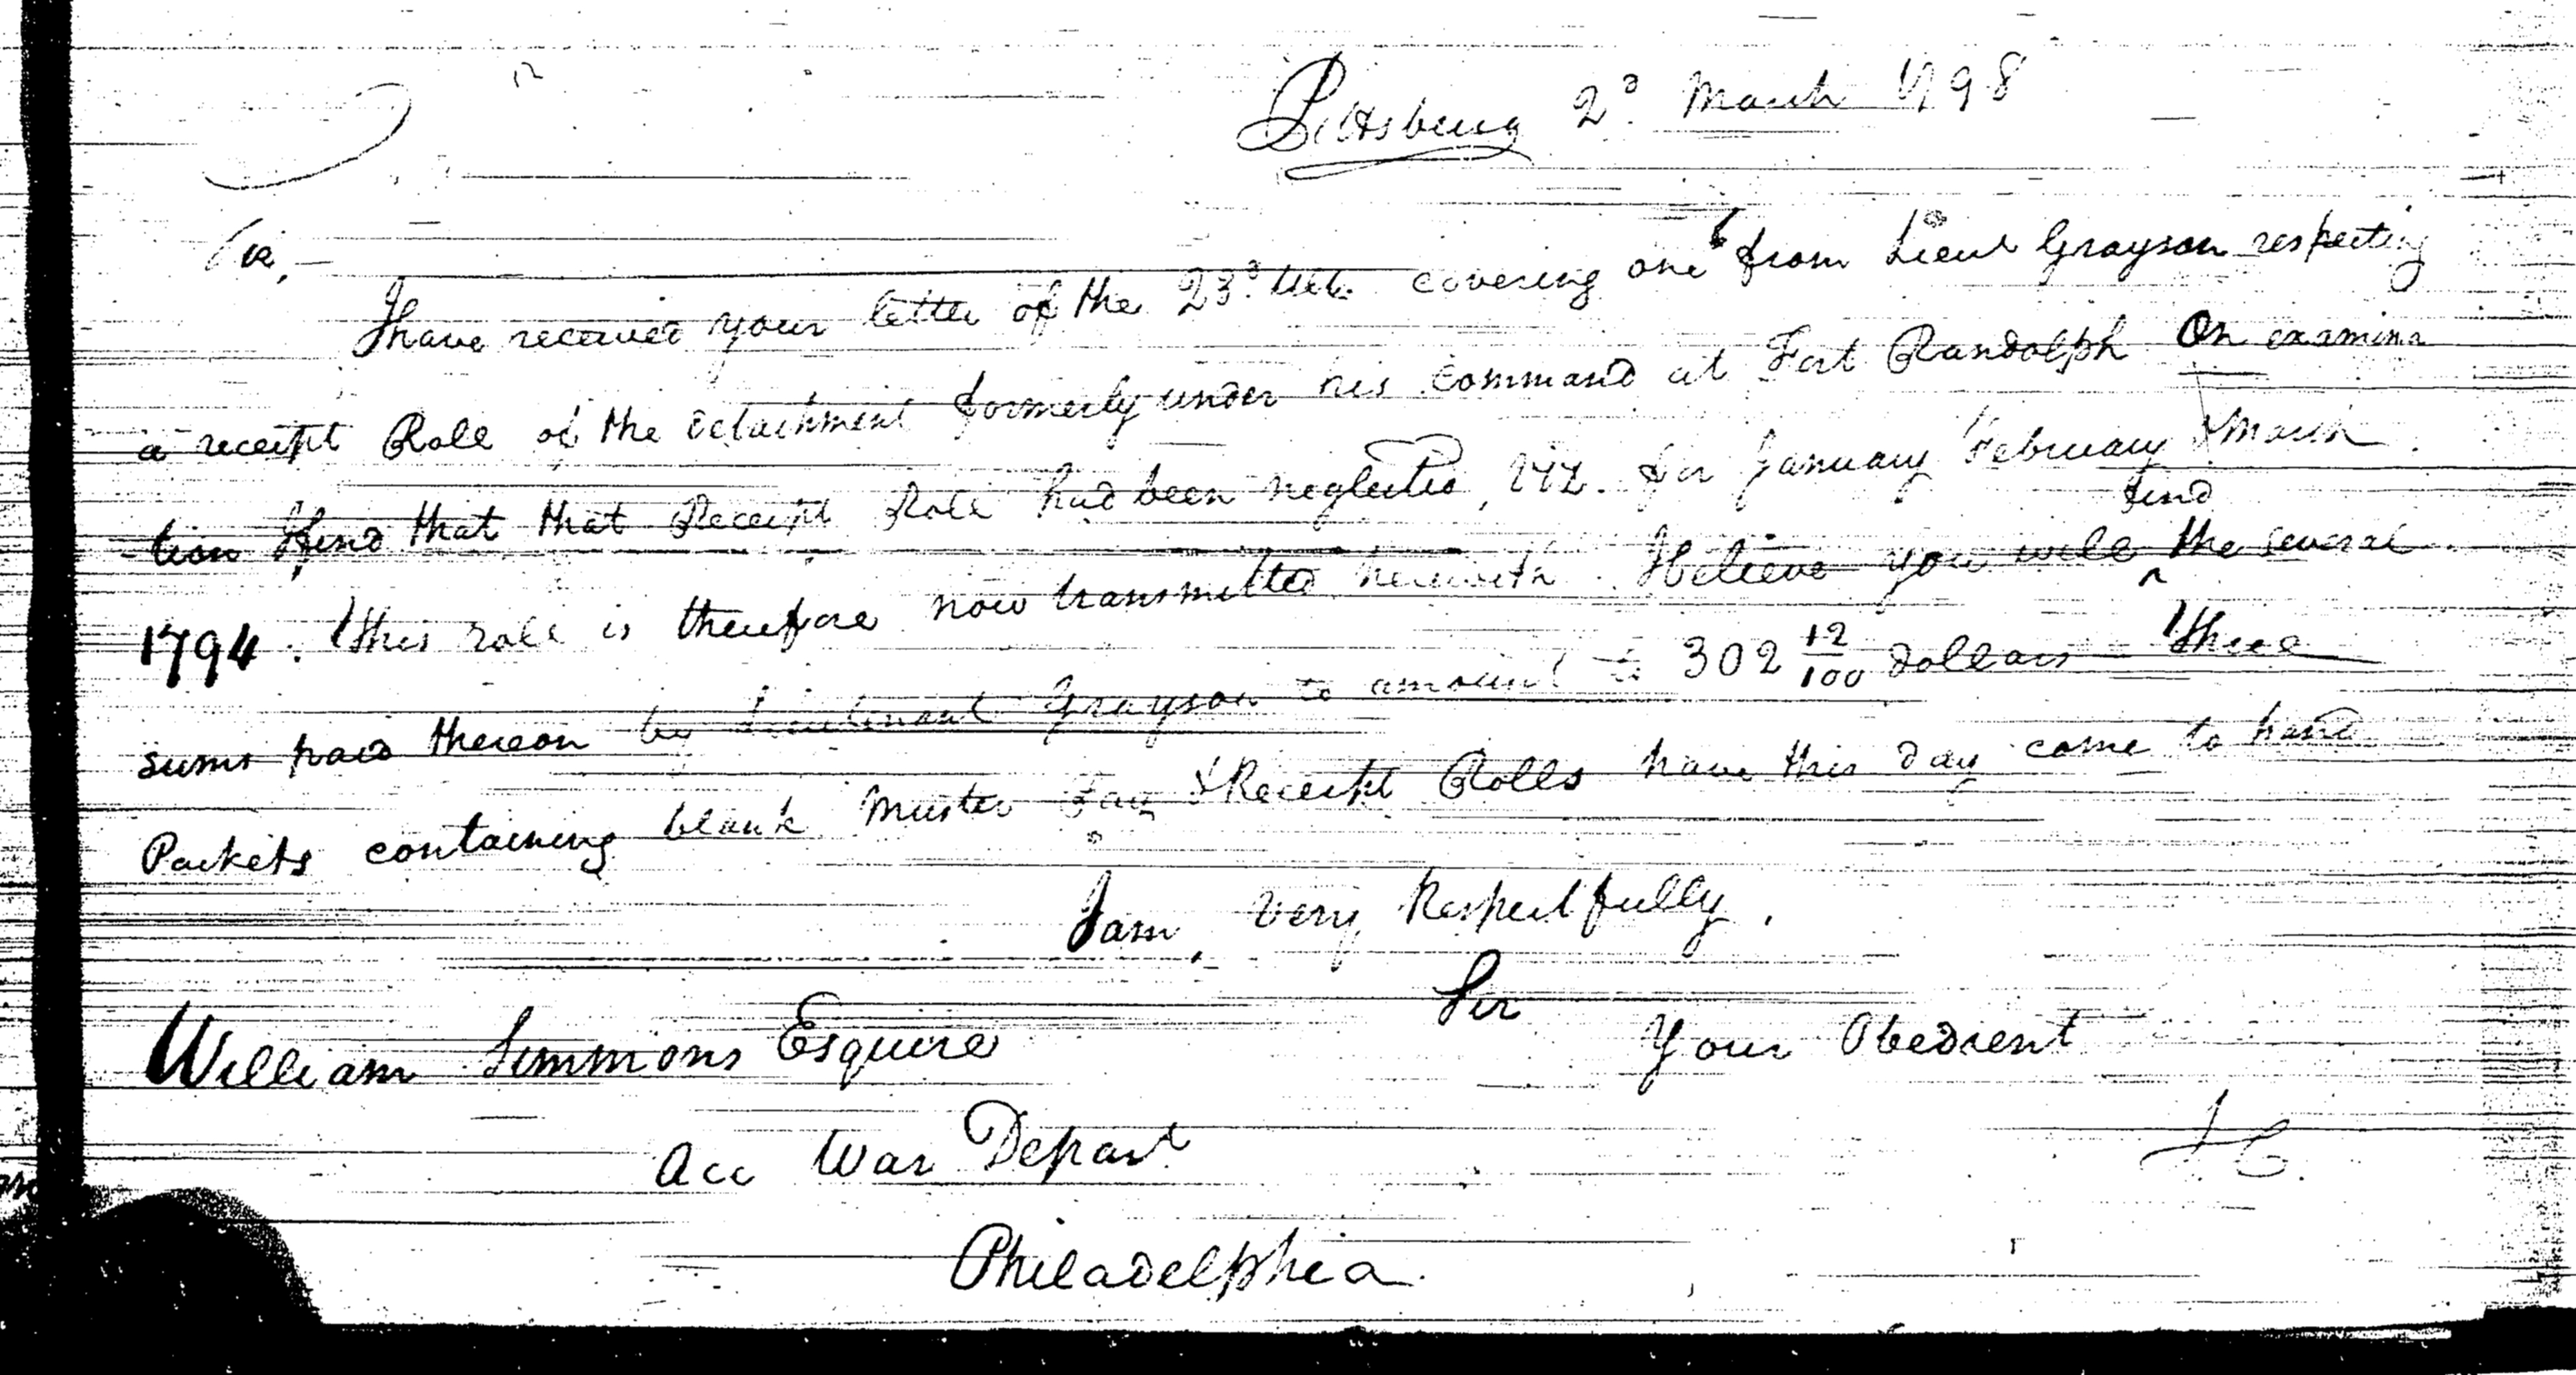 Pittsburg 2d March 1798
Sir,
I have received your letter of the 23d Ulto. covering one from Lieut Grayson respecting
a receipt Role of the detachment formerly under his command at Fort Randolph On examina
tion I find that that Receipt Role had been neglected, Viz. for January February & March
1794. This role is therefore now transmitted herewith. I believe you will ^find the several
sums paid thereon by Lieutenant Grayson to amount to 302 12/100 dollars – Three
Packets containing blank Muster Pay & Receipt Rolls have this day come to hand
I am, Very Respectfully,
Sir
Your Obedient
William Simmons Esquire
Acc War Depart
Philadelphia